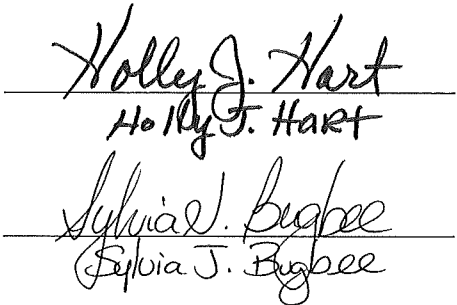 Holly J. Hart
Holly J. Hart
Sylvia J. Bugbee
Sylvia J. Bugbee